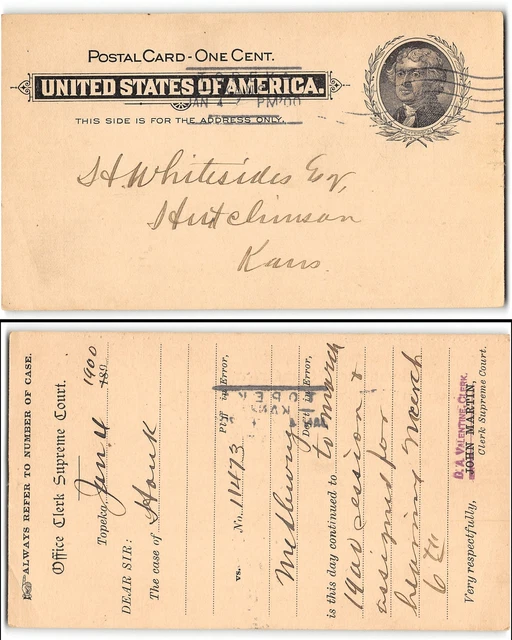 POSTAL CARD - ONE CENT.
UNITED STATES OF AMERICA.
JAN 4 PM 1900
THIS SIDE IS FOR THE ADDRESS ONLY.
H. Whitesides Esq,
Hutchinson
Kans.
ALWAYS REFER TO NUMBER OF CASE.
Office Clerk Supreme Court.
Topeka, Jan 4 1900
189
DEAR SIR:
The case of Houk
Pl'ff in Error,
vs. No. 11473
Def't in Error,
is this day continued to to march
1900 session &
assigned for
hearing march
6th
Very respectfully,
D. A. VALENTINE, CLERK.
JOHN MARTIN,
Clerk Supreme Court.